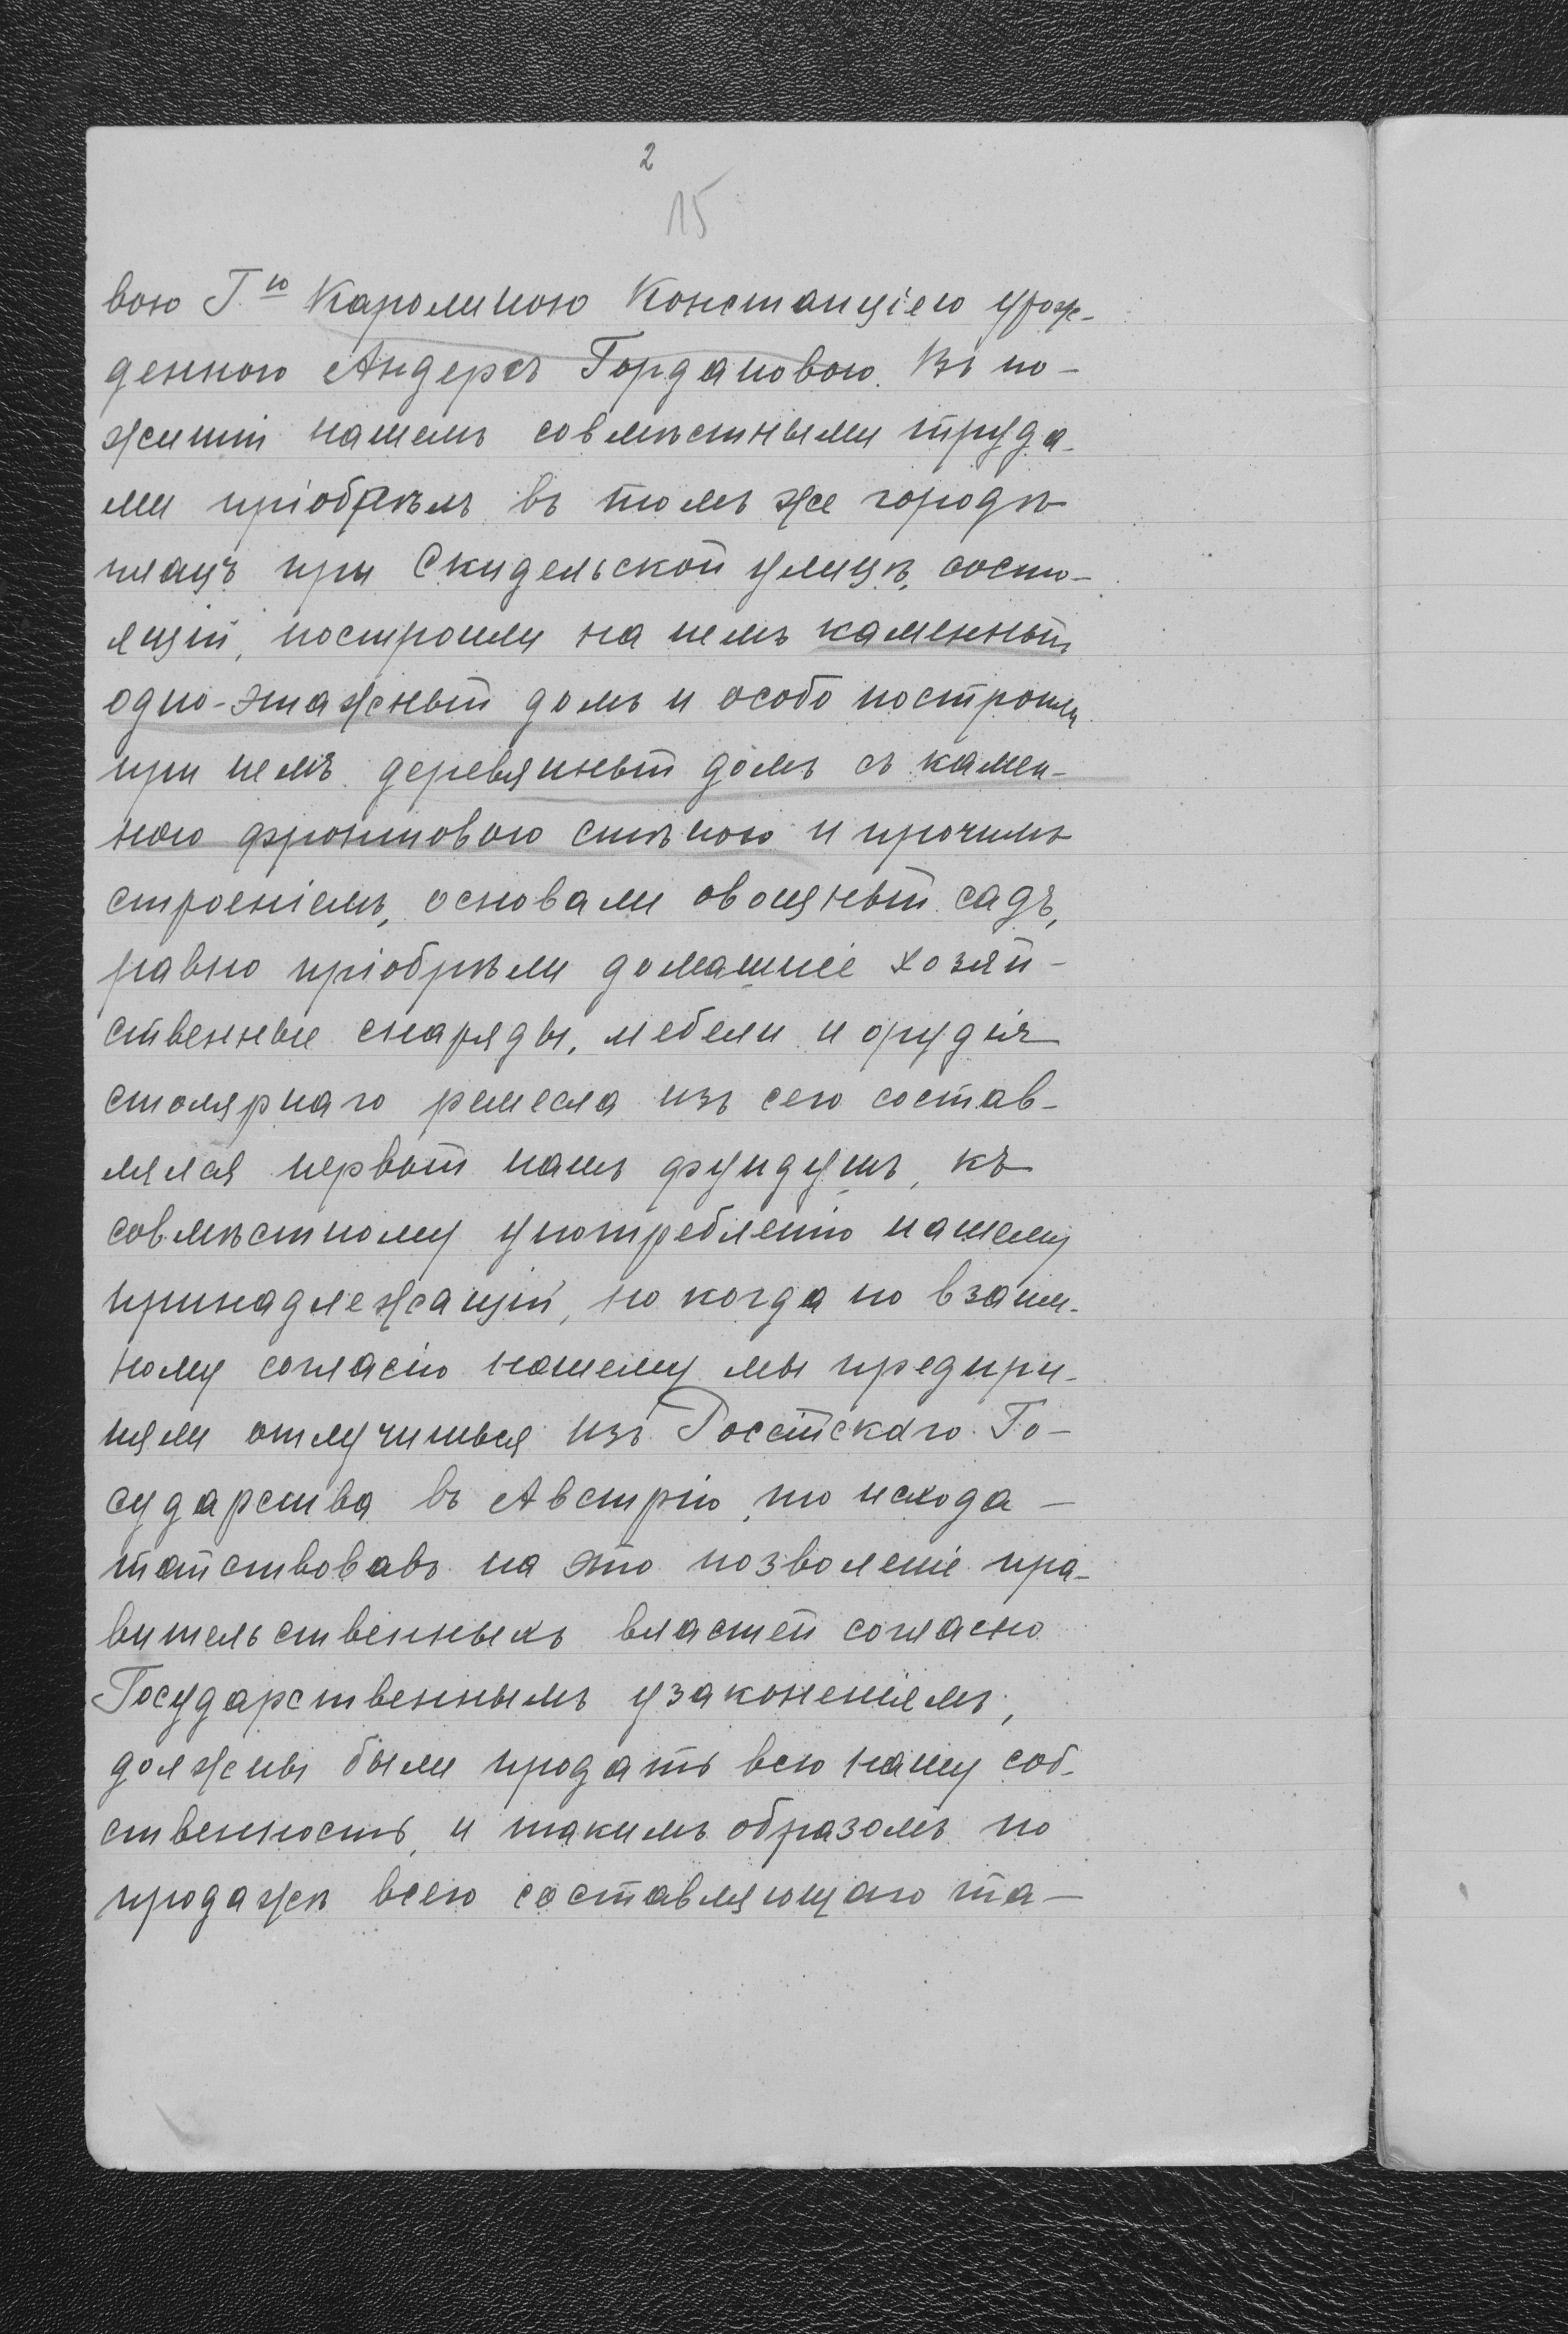 2
15
вою Г.ю Каролиною Констанціею урож-
денною Андерсъ Гордановою. Въ по-
житіи нашемъ совмѣстными труда-
ми пріобрѣлъ въ томъ же городѣ
плацъ при Скидельской улицѣ, состо-
ящій, построили на немъ каменный
одно-этажный домъ и особо построили
при немъ деревянный домъ съ камен-
ною фронтовою стѣною и прочимъ
строеніемъ, основали овощный садъ,
равно пріобрѣли домашніе хозяй-
ственные снаряды, мебели и орудія
столярнаго ремесла изъ сего состав-
лялся первый нашъ фундушъ, къ
совмѣстному употребленію нашему
принадлежащій, но когда по взаим-
ному согласію нашему мы предпри-
няли отлучиться изъ Россійскаго Го-
сударства въ Австрію, то исхода-
тайствовавъ на это позволеніе пра-
вительственныхъ властей согласно
Государственнымъ узаконеніямъ,
должны были продать всю нашу соб-
ственность, и такимъ образомъ по
продажѣ всего составляющаго та-